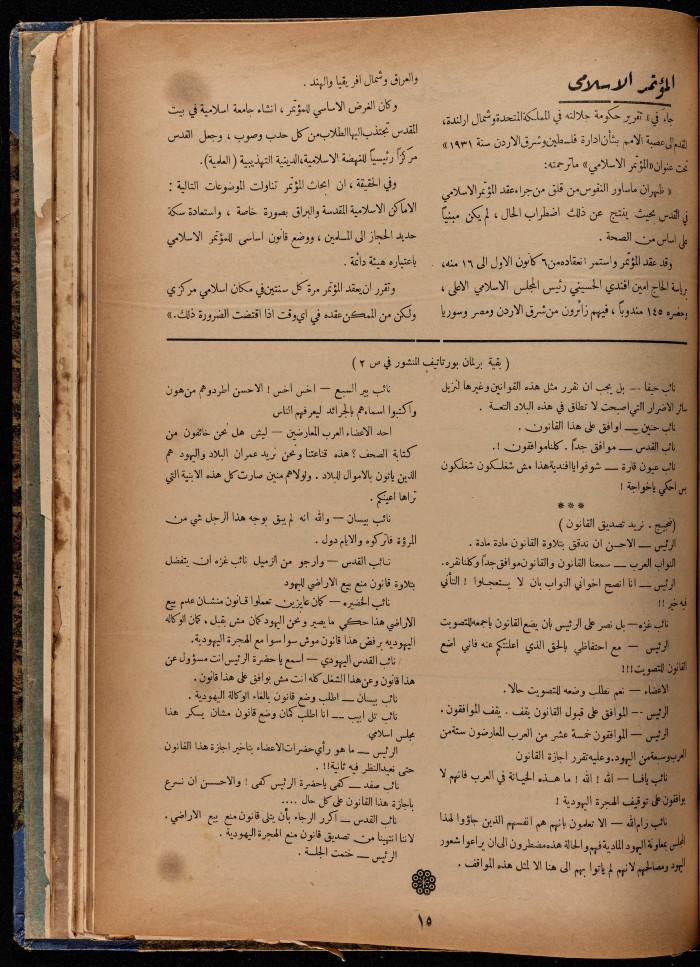 المؤتمر الاسلامي
جاء في «تقرير حكومة جلالته في المملكة المتحدة وشمال ارلندة،
المقدم الى عصبة الامم بشأن ادارة فلسطين وشرق الاردن سنة ١٩٣١»
تحت عنوان «المؤتمر الاسلامي» ما ترجمته:
«ظهر ان ما ساور النفوس من قلق من جراء عقد المؤتمر الاسلامي
في القدس بحيث ينتج عن ذلك اضطراب الحال، لم يكن مبنياً
على اساس من الصحة.
وقد عقد المؤتمر واستمر انعقاده من ٦ كانون الاول الى ١٦ منه،
برياسة الحاج امين افندي الحسيني رئيس المجلس الاسلامي الاعلى،
وحضره ١٤٥ مندوباً، فيهم زائرون من شرق الاردن ومصر وسوريا
والعراق وشمال افريقيا والهند.
وكان الغرض الاساسي للمؤتمر، انشاء جامعة اسلامية في بيت
المقدس تجتذب اليها الطلاب من كل حدب وصوب، وجعل القدس
مركزاً رئيسياً للنهضة الاسلامية، الدينية التهذيبية (العلمية).
وفي الحقيقة، ان ابحاث المؤتمر تناولت الموضوعات التالية:
الاماكن الاسلامية المقدسة والبراق بصورة خاصة، واستعادة سكة
حديد الحجاز الى المسلمين، ووضع قانون اساسي للمؤتمر الاسلامي
باعتباره هيئة دائمة.
وتقرر ان يعقد المؤتمر مرة كل سنتين في مكان اسلامي مركزي
ولكن من الممكن عقده في اي وقت اذا اقتضت الضرورة ذلك.»
( بقية برلمان بورتاتيف المنشور في ص ٢ )
نائب حيفا — بل يجب ان نقرر مثل هذه القوانين وغيرها لنزيل
سائر الاضرار التي اصبحت لا تطاق في هذه البلاد التعسة.
نائب جنين — اوافق على هذا القانون.
نائب القدس — موافق جداً. كلنا موافقون !.
نائب عيون قارة — شو فوايا افندية هذا مش شغلكون شغلكون
بس احكي ياخواجة !
***
(ضجيج. نريد تصديق القانون)
الرئيس — الاحسن ان ندقق بتلاوة القانون مادة مادة.
النواب العرب — سمعنا القانون والقانون موافق جداً وكلنا نقره.
الرئيس — انا انصح اخواني النواب بان لا يستعجلوا ! التأني
فيه خير !!
نائب غزه — بل نصر على الرئيس بان يضع القانون باجمعه للتصويت
الرئيس — مع احتفاظي بالحق الذي اعلنتكم عنه فاني اضع
القانون للتصويت!!!
الاعضاء — نعم نطلب وضعه للتصويت حالا.
الرئيس — الموافق على قبول القانون يقف. يقف الموافقون.
الرئيس — الموافقون خمسة عشر من العرب المعارضون ستة من
العرب وسبعة من اليهود. وعليه تقرر اجازة القانون
نائب يافا — الله ! الله ! ما هذه الخيانة في العرب فانهم لا
يوافقون على توقيف الهجرة اليهودية !
نائب رام الله — الا تعلمون بانهم هم انفسهم الذين جاؤوا لهذا
المجلس بمعاونة اليهود المادية فهم والحالة هذه مضطرون الى ان يراعوا شعور
اليهود ومصالحهم لانهم لم يأتوا بهم الى هنا الا لمثل هذه المواقف.
نائب بير السبع — اخس اخس ! الاحسن اطردوهم من هون
واكتبوا اسماءهم بالجرائد ليعرفهم الناس
احد الاعضاء العرب المعارضين — ليش هل نحن خائفون من
كتابة الصحف ؟ هذه قناعتنا ونحن نريد عمران البلاد واليهود هم
الذين ياتون بالاموال للبلاد. ولولاهم منين صارت كل هذه الابنية التي
تراها اعينكم.
نائب بيسان — والله انه لم يبق بوجه هذا الرجل شي من
المرؤة فاتركوه والايام دول.
نائب القدس — وارجو من الزميل نائب غزه ان يتفضل
بتلاوة قانون منع بيع الاراضي لليهود
نائب الخضيره — كمان عايزين تعملوا قانون منشان عدم بيع
الاراضي هذا حكي ما يصير ونحن اليهود كمان مش بقبل. كمان الوكاله
اليهوديه برفض هذا قانون موش سوا سوا مع الهجرة اليهودية.
نائب القدس اليهودي — اسمع ياحضرة الرئيس انت مسؤول عن
هذا قانون وعن هذا الشغل كله انت مش بوافق على هذا قانون.
نائب بيسان — اطلب وضع قانون بالغاء الوكالة اليهودية.
نائب تل ابيب — انا اطلب كمان وضع قانون مشان يسكر هذا
مجلس اسلامي
الرئيس — ما هو رأي حضرات الاعضاء بتاخير اجازة هذا القانون
حتى نعيد النظر فيه ثانية !!.
نائب صفد — كفى ياحضرة الرئيس كفى ! والاحسن ان نسرع
باجازة هذا القانون على كل حال ....
نائب القدس — اكرر الرجاء بأن يتلى قانون منع بيع الاراضي.
لاننا انتهينا من تصديق قانون منع الهجرة اليهودية.
الرئيس — ختمت الجلسة.
١٥